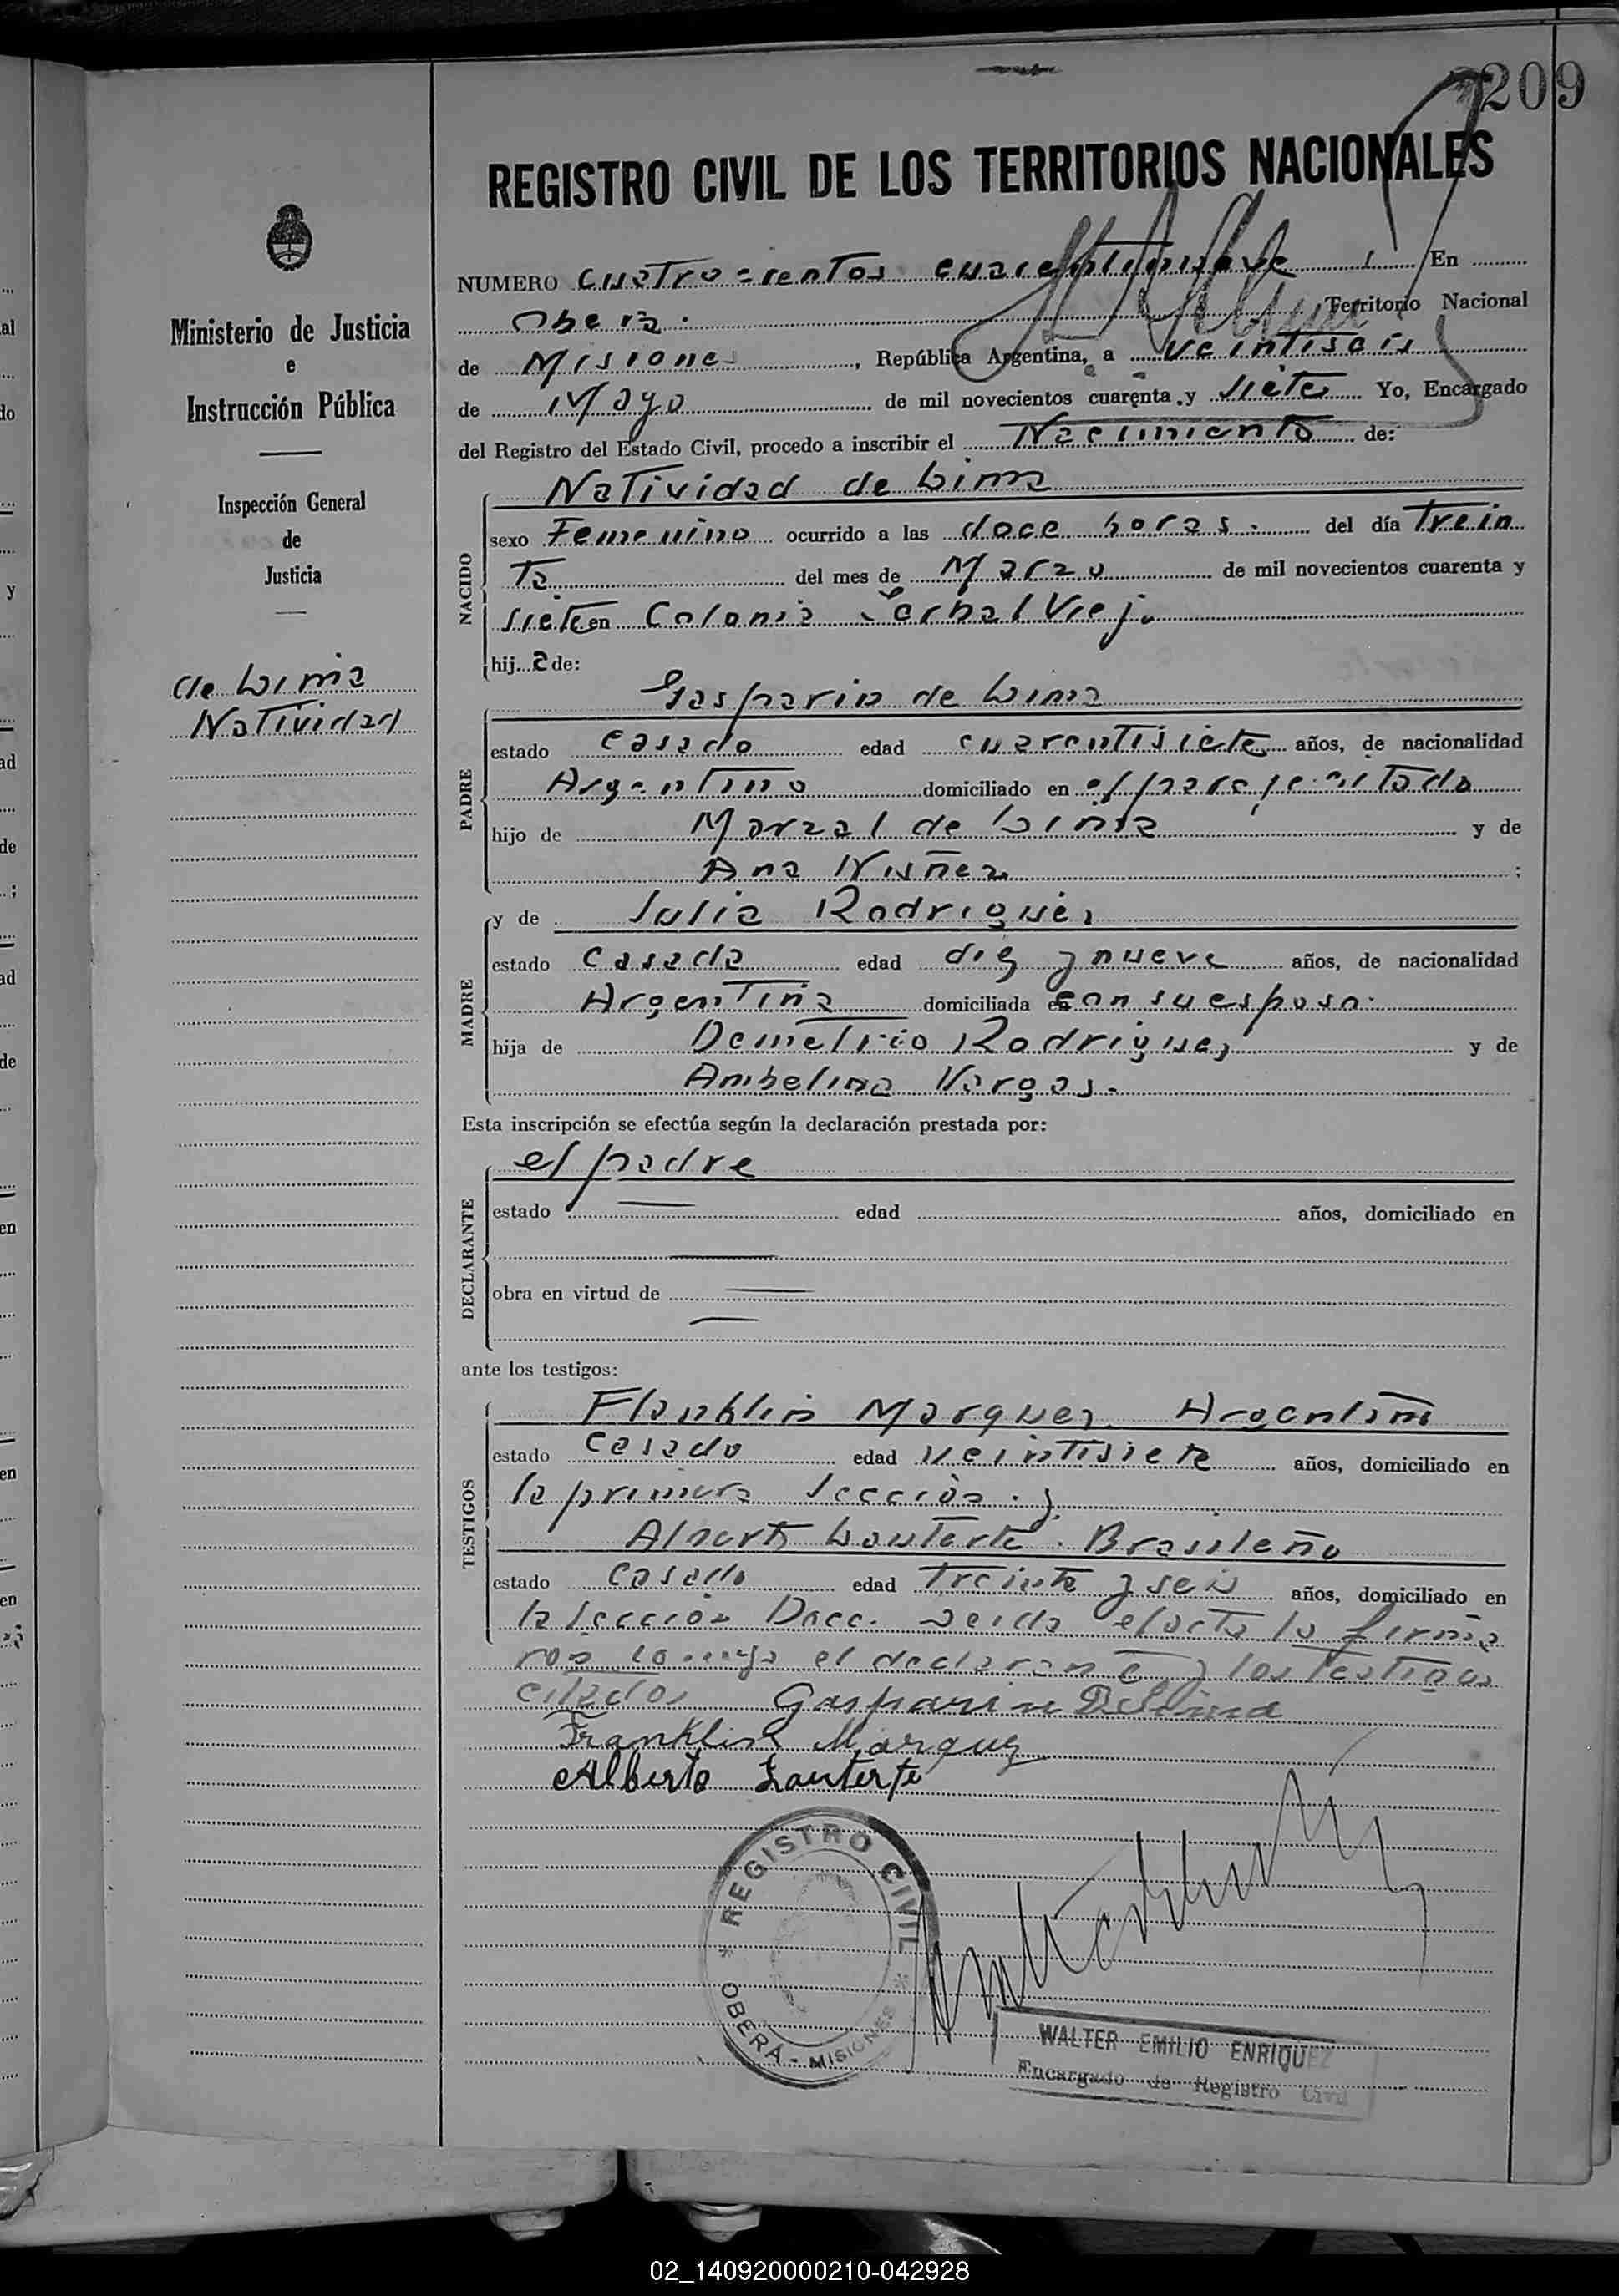 209
REGISTRO CIVIL DE LOS TERRITORIOS NACIONALES
Ministerio de Justicia
e
Instrucción Pública
Inspección General
de
Justicia
de Lima
Natividad
NUMERO cuatrocientos cuarentinueve En
Obera. Territorio Nacional
de Misiones, República Argentina, a veintiseis
de Mayo de mil novecientos cuarenta y siete Yo, Encargado
del Registro del Estado Civil, procedo a inscribir el Nacimiento de:
NACIDO
Natividad de Lima
sexo Femenino ocurrido a las doce horas. del día trein
ta del mes de Marzo de mil novecientos cuarenta y
siete en Colonia Yerbal Viejo
hija de:
PADRE
Gasparin de Lima
estado casado edad cuarentisiete años, de nacionalidad
Argentino domiciliado en el paraje citado
hijo de Marzal de Lima y de
Ana Nuñez ;
MADRE
y de Julia Rodriguez
estado casada edad diez y nueve años, de nacionalidad
Argentina domiciliada en con su esposo.
hija de Demetrio Rodriguez y de
Ambelina Vargas.
Esta inscripción se efectúa según la declaración prestada por:
DECLARANTE
el padre
estado edad años, domiciliado en
obra en virtud de
ante los testigos:
TESTIGOS
Flanklin Marquez Argentino
estado casado edad veintisiete años, domiciliado en
la primera sección. y
Alberto Lauterte. Brasileño
estado casado edad treinta y seis años, domiciliado en
la sección Doce. Leida el acta la firma
ron conmigo el declarante y los testigos
citados Gasparin De Lima
Franklin Marquez
Alberto Lauterte
REGISTRO CIVIL
OBERA - MISIONES
WALTER EMILIO ENRIQUEZ
Encargado de Registro Civil
02_140920000210-042928